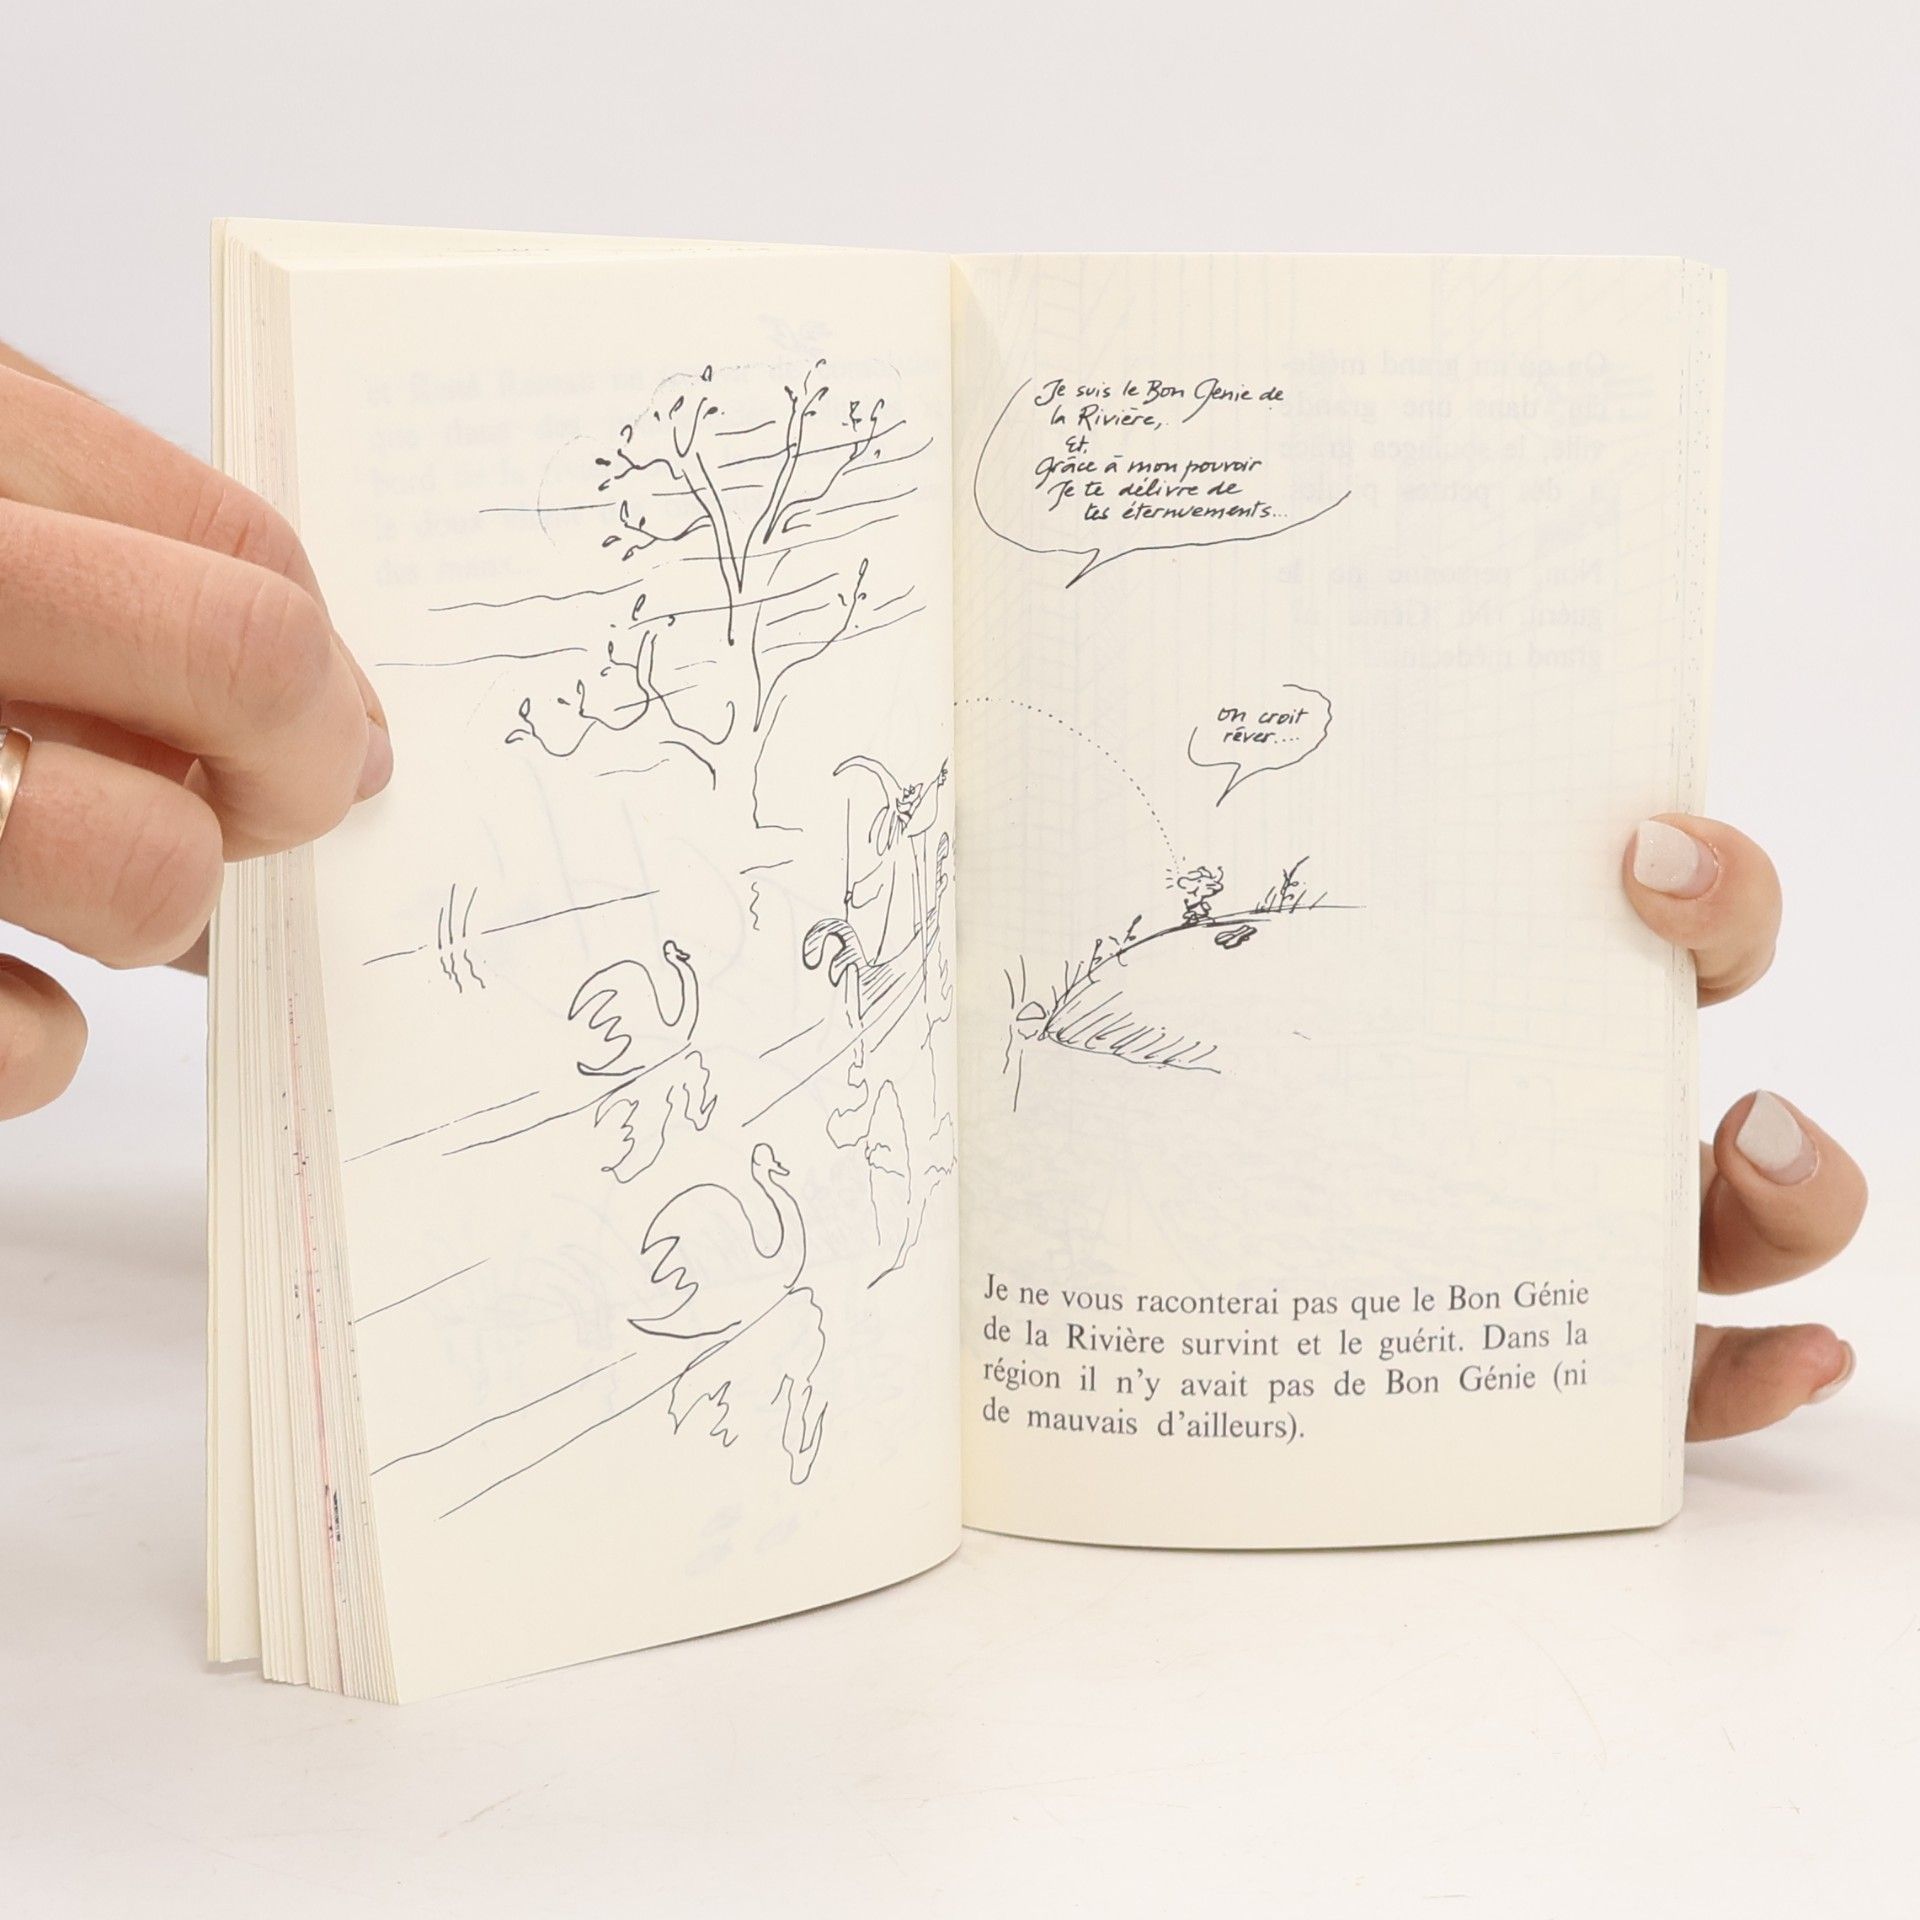 Je suis le Bon Génie de
la Rivière,
Et
Grâce à mon pouvoir
Je te délivre de
tes éternuements...
on croit
rêver....
Je ne vous raconterai pas que le Bon Génie
de la Rivière survint et le guérit. Dans la
région il n'y avait pas de Bon Génie (ni
de mauvais d'ailleurs).